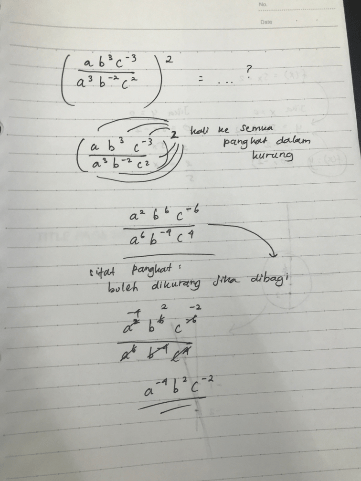 No.
Date
(a b³ c⁻³ / a³ b⁻² c²)² = ... ?
(a b³ c⁻³ / a³ b⁻² c²)² kali ke semua
pangkat dalam
kurung
a² b⁶ c⁻⁶ / a⁶ b⁻⁴ c⁴
sifat pangkat :
boleh dikurang jika dibagi
-4 2 -2
a² b⁶ c⁻⁶ / a⁶ b⁻⁴ c⁴
a⁻⁴ b² c⁻²